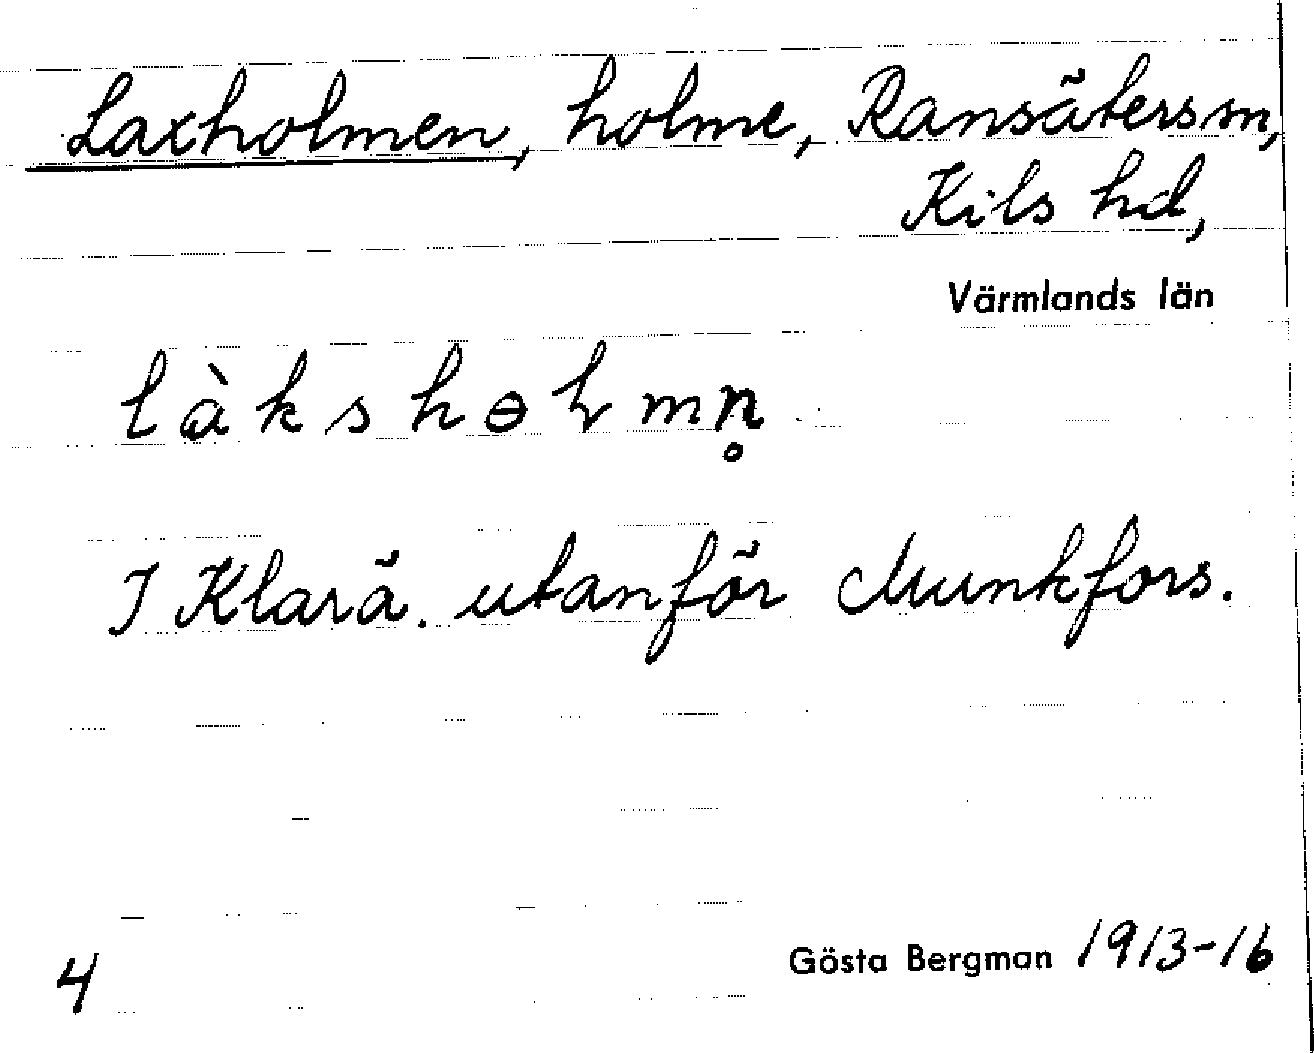 Laxholmen, holme, Ransäters sn,
Kils hd,
Värmlands län
làkshɵɫmn̥
I Klarä. utanför Munkfors.
4 Gösta Bergman 1913-16